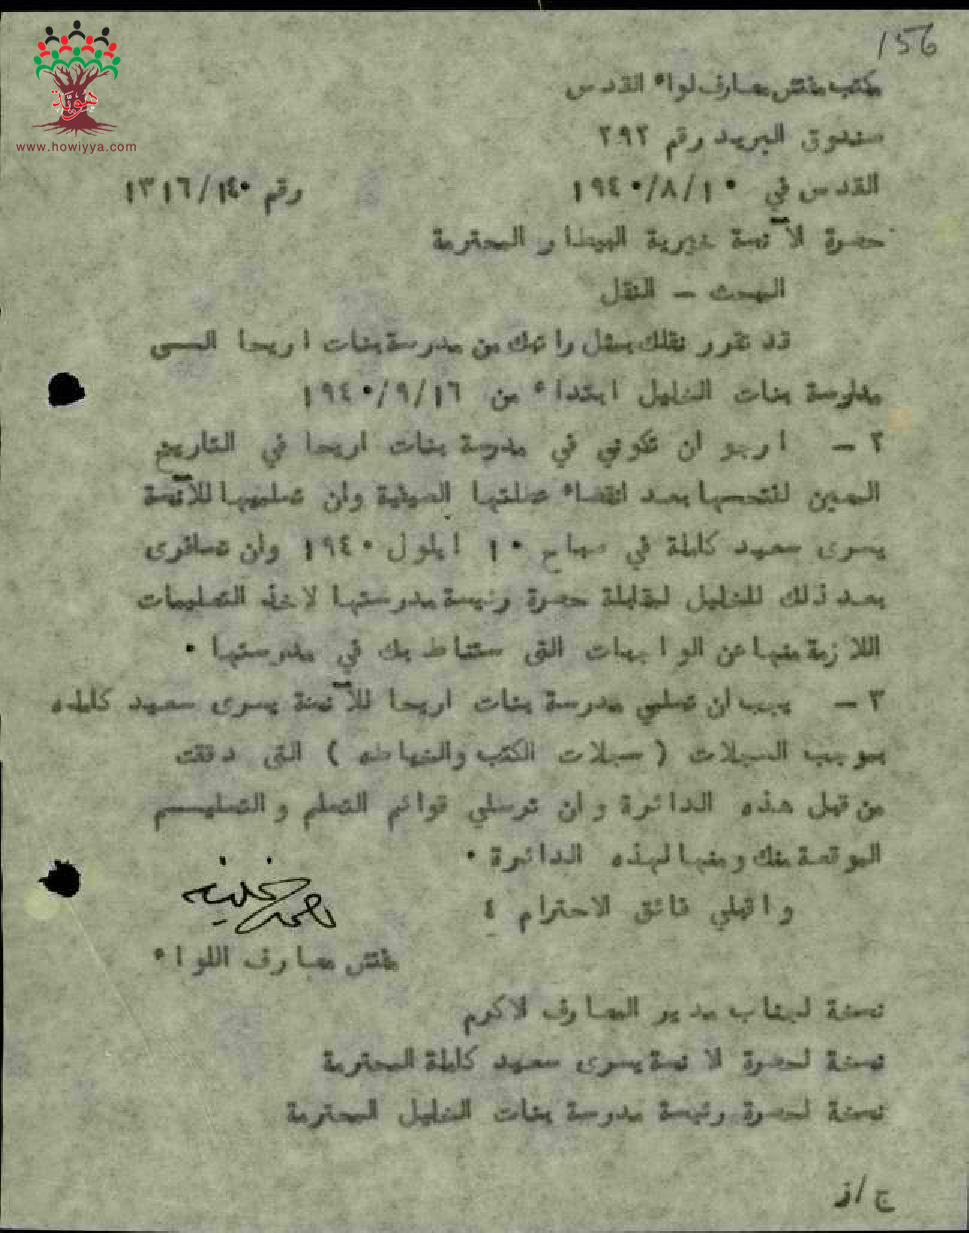 156
هوية
www.howiyya.com
مكتب مفتش معارف لواء القدس
صندوق البريد رقم ٢٩٢
القدس في ١٩٤٠/٨/١٠ رقم ١٣١٦/١٤٠
حضرة الآنسة خيرية البيطار المحترمة
البحث – النقل
قد تقرر نقلك بمثل راتبك من مدرسة بنات اريحا الــى
مدارسة بنات الخليل ابتداء من ١٩٤٠/٩/١٦
٢ – ارجو ان تكوني في مدرسة بنات اريحا في التاريخ
المعين لفتحها بعد انقضاء عطلتها الصيفية وان تسلميها للآنسة
يسرى سعيد كاملة في صباح ١٠ ايلول ١٩٤٠ وان تسافرى
بعد ذلك للخليل لمقابلة حضرة رئيسة مدرستها لاخذ التعليمات
اللازمة منها عن الواجبات التى ستناط بك في مدرستها ٠
٣ – يجب ان تسلمي مدرسة بنات اريحا للآنسة يسرى سعيد كامله
بموجب السجلات ( سجلات الكتب والخياطه ) التى دققت
من قبل هذه الدائرة وان ترسلي قوائم التسلم والتسليــم
الموقعة منك ومنها لهذه الدائرة ٠
واقبلي فائق الاحترام ٤
مفتش معارف اللواء
نسخة لجناب مدير المعارف الاكرم
نسخة لحضرة الانسة يسرى سعيد كاملة المحترمة
نسخة لحضرة رئيسة مدرسة بنات الخليل المحترمة
ج/ز